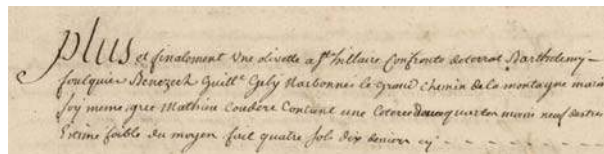 Plus et finalement Une olivette a St hillaire Confronte deterral Barthelemy
foulquier Benezech Guille Gely Narbonnes le grand chemin de la montagne marin
soy meme, grec Mathine Coudere Contient une Coteree quarton moins neuf dextres
Estime foible du moyen fait quatre sols dix deniers cy